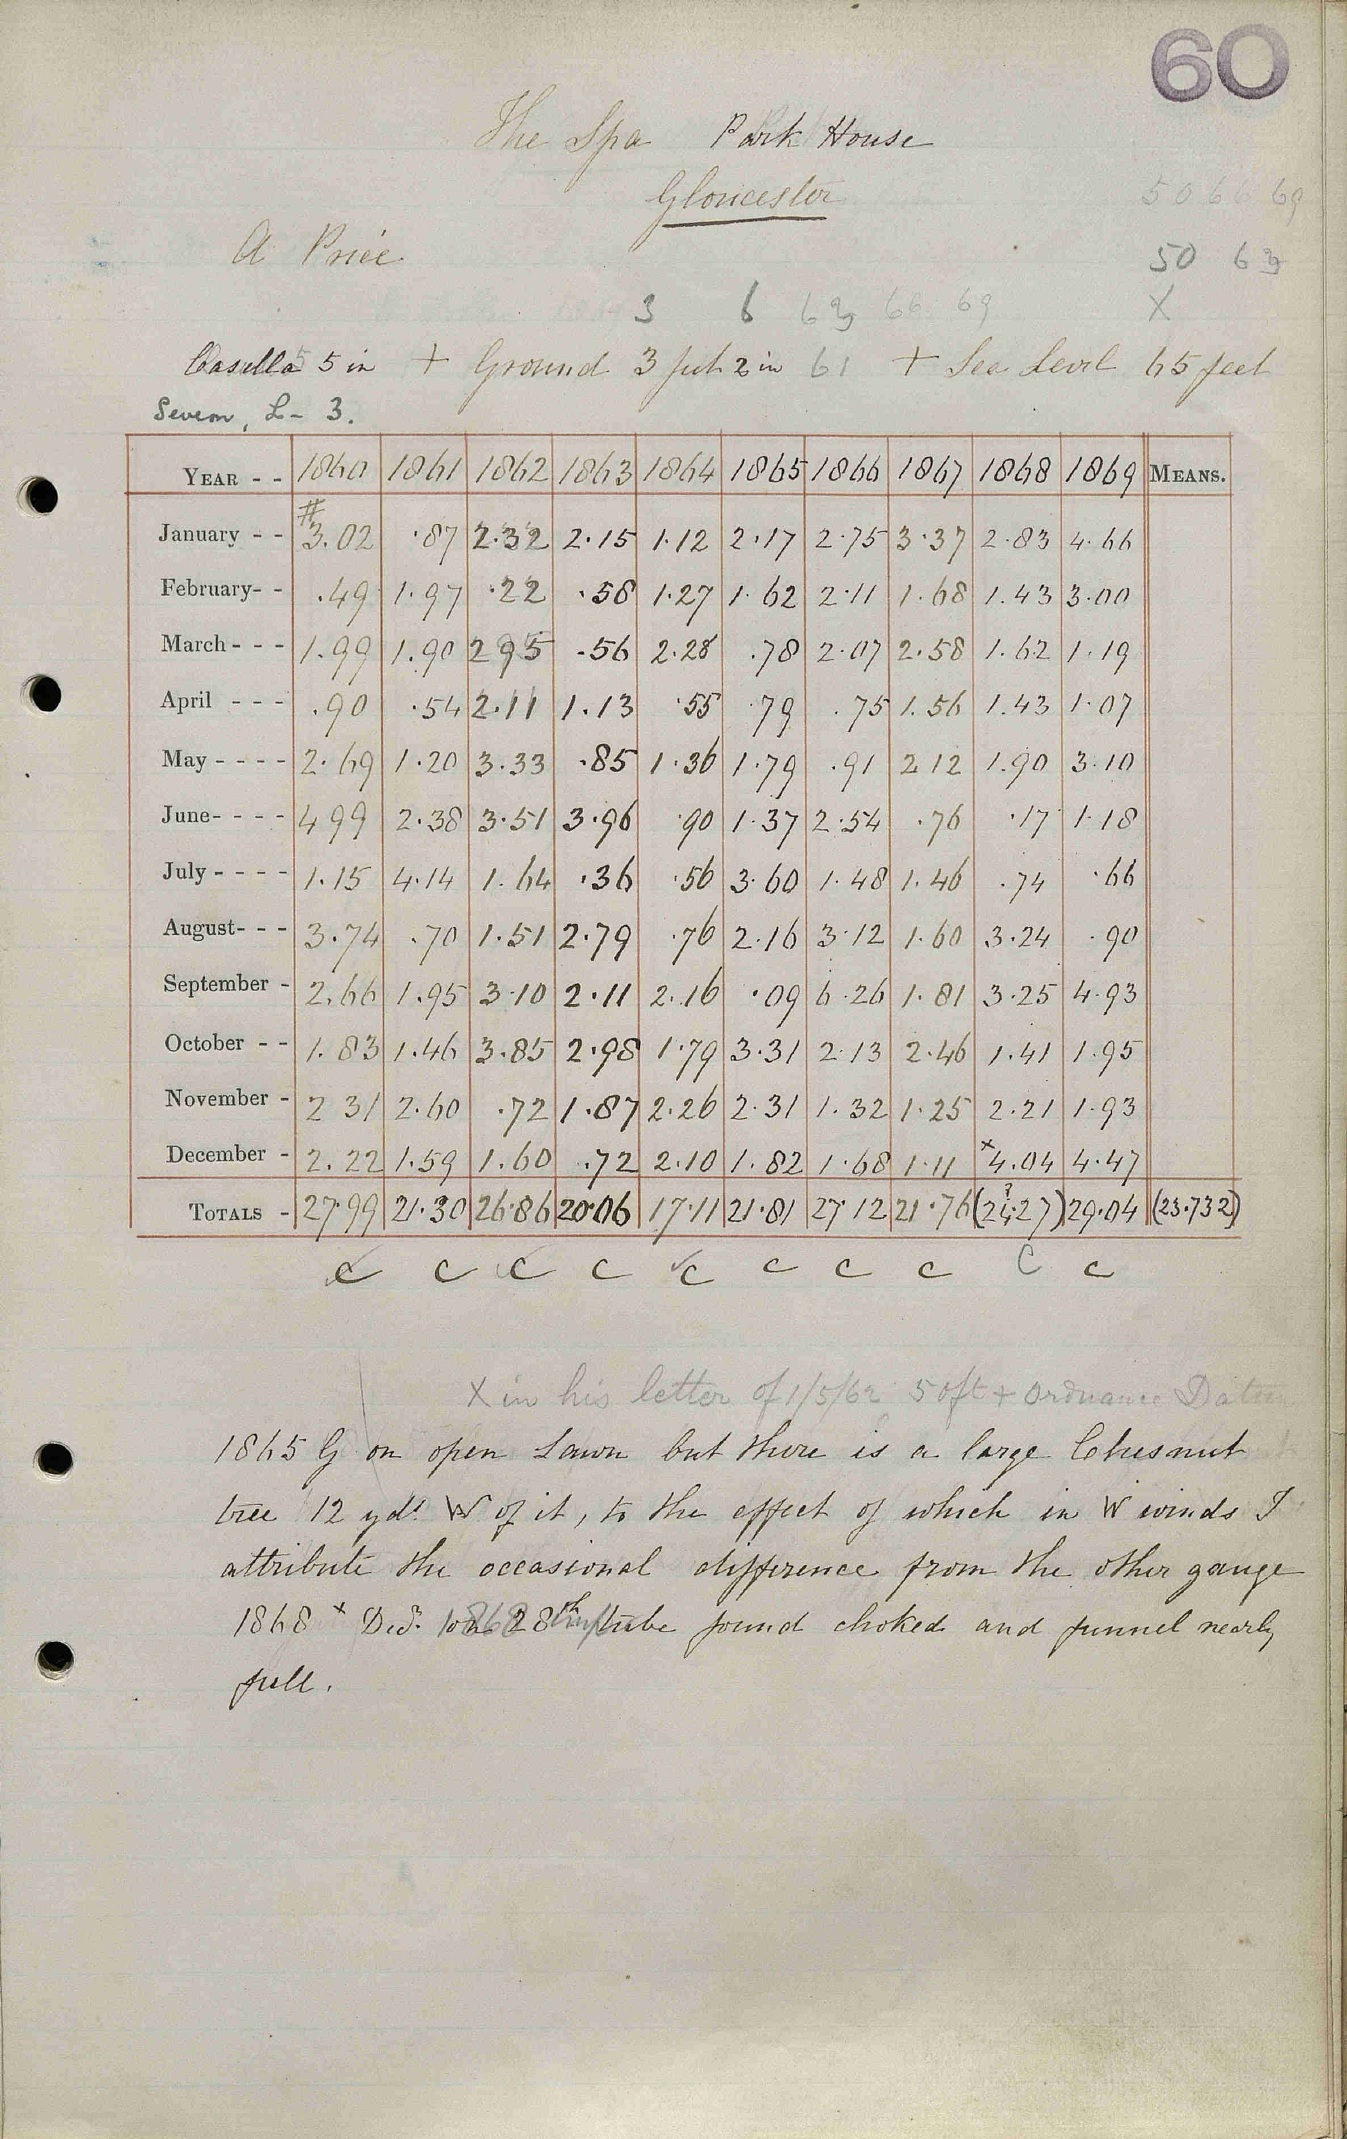 60
The Spa Park House
Gloucester
50 66 69
A Price
50 63
3 6 63 66 69 X
Casella 5 in + Ground 3 feet 2 in 61 + Sea Level 65 feet
Severn, L- 3.
YEAR - - 1860 1861 1862 1863 1864 1865 1866 1867 1868 1869 MEANS.
#
January - - 3.02 .87 2.32 2.15 1.12 2.17 2.75 3.37 2.83 4.66
February- - .49 1.97 .22 .58 1.27 1.62 2.11 1.68 1.43 3.00
March - - - 1.99 1.90 2 95 .56 2.28 .78 2.07 2.58 1.62 1.19
April - - - .90 .54 2.11 1.13 .55 .79 .75 1.56 1.43 1.07
May - - - - 2.69 1.20 3.33 .85 1.36 1.79 .91 2 12 1.90 3.10
June- - - - 4 99 2.38 3.51 3.96 .90 1.37 2.54 .76 .17 1.18
July - - - - 1.15 4.14 1.64 .36 .56 3.60 1.48 1.46 .74 .66
August- - - 3.74 .70 1.51 2.79 .76 2.16 3.12 1.60 3.24 .90
September - 2.66 1.95 3.10 2.11 2.16 .09 6.26 1.81 3.25 4.93
October - - 1.83 1.46 3.85 2.98 1.79 3.31 2.13 2.46 1.41 1.95
November - 2 31 2.60 .72 1.87 2.26 2.31 1.32 1.25 2.21 1.93
December - 2.22 1.59 1.60 .72 2.10 1.82 1.68 1.11 x4.04 4.47
TOTALS - 27.99 21.30 26.86 20.06 17.11 21.81 27.12 21.76 (24.27) 29.04 (23.732)
c c c c c c c c c c
X in his letter of 1/5/62 50ft + Ordnance Datum
1865 G on open Lawn but there is a large Chesnut
tree 12 yds W of it, to the effect of which in W winds I
attribute the occasional difference from the other gauge
1868 x Decr. 28th tube found choked and funnel nearly
full.